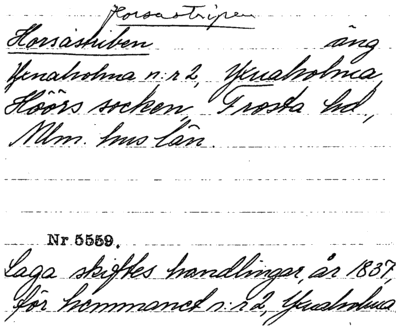 Horsastripen
Horsastiben äng
Ynaholma n:r 2, Ynaholma,
Höörs socken, Frosta hd,
Mlm. hus län.
Nr 5559.
Laga skiftes handlingar, år 1837,
för hemmanet n:r 2, Ynaholma